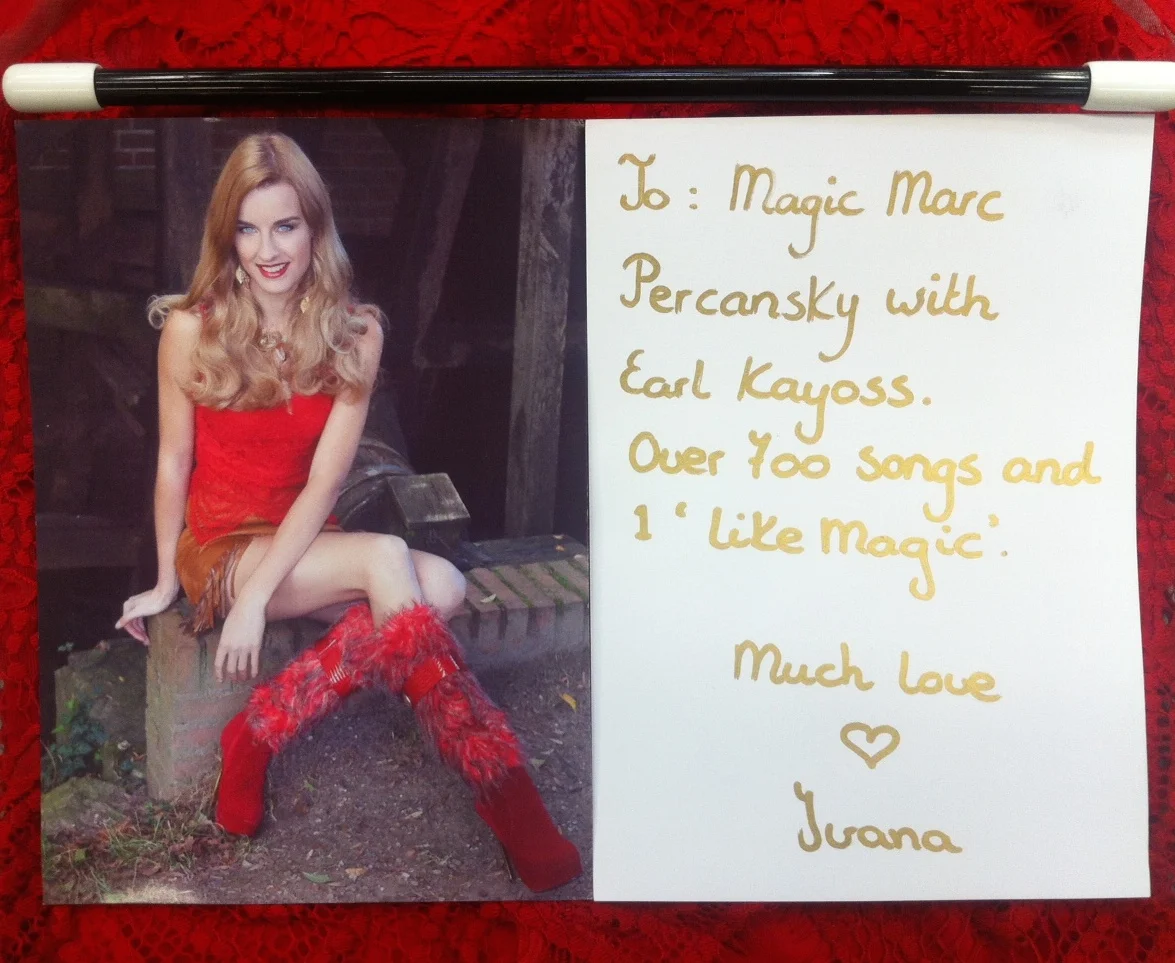 To: Magic Marc
Percansky with
Earl Kayoss.
Over 700 songs and
1 'like Magic'.
Much love
Ivana